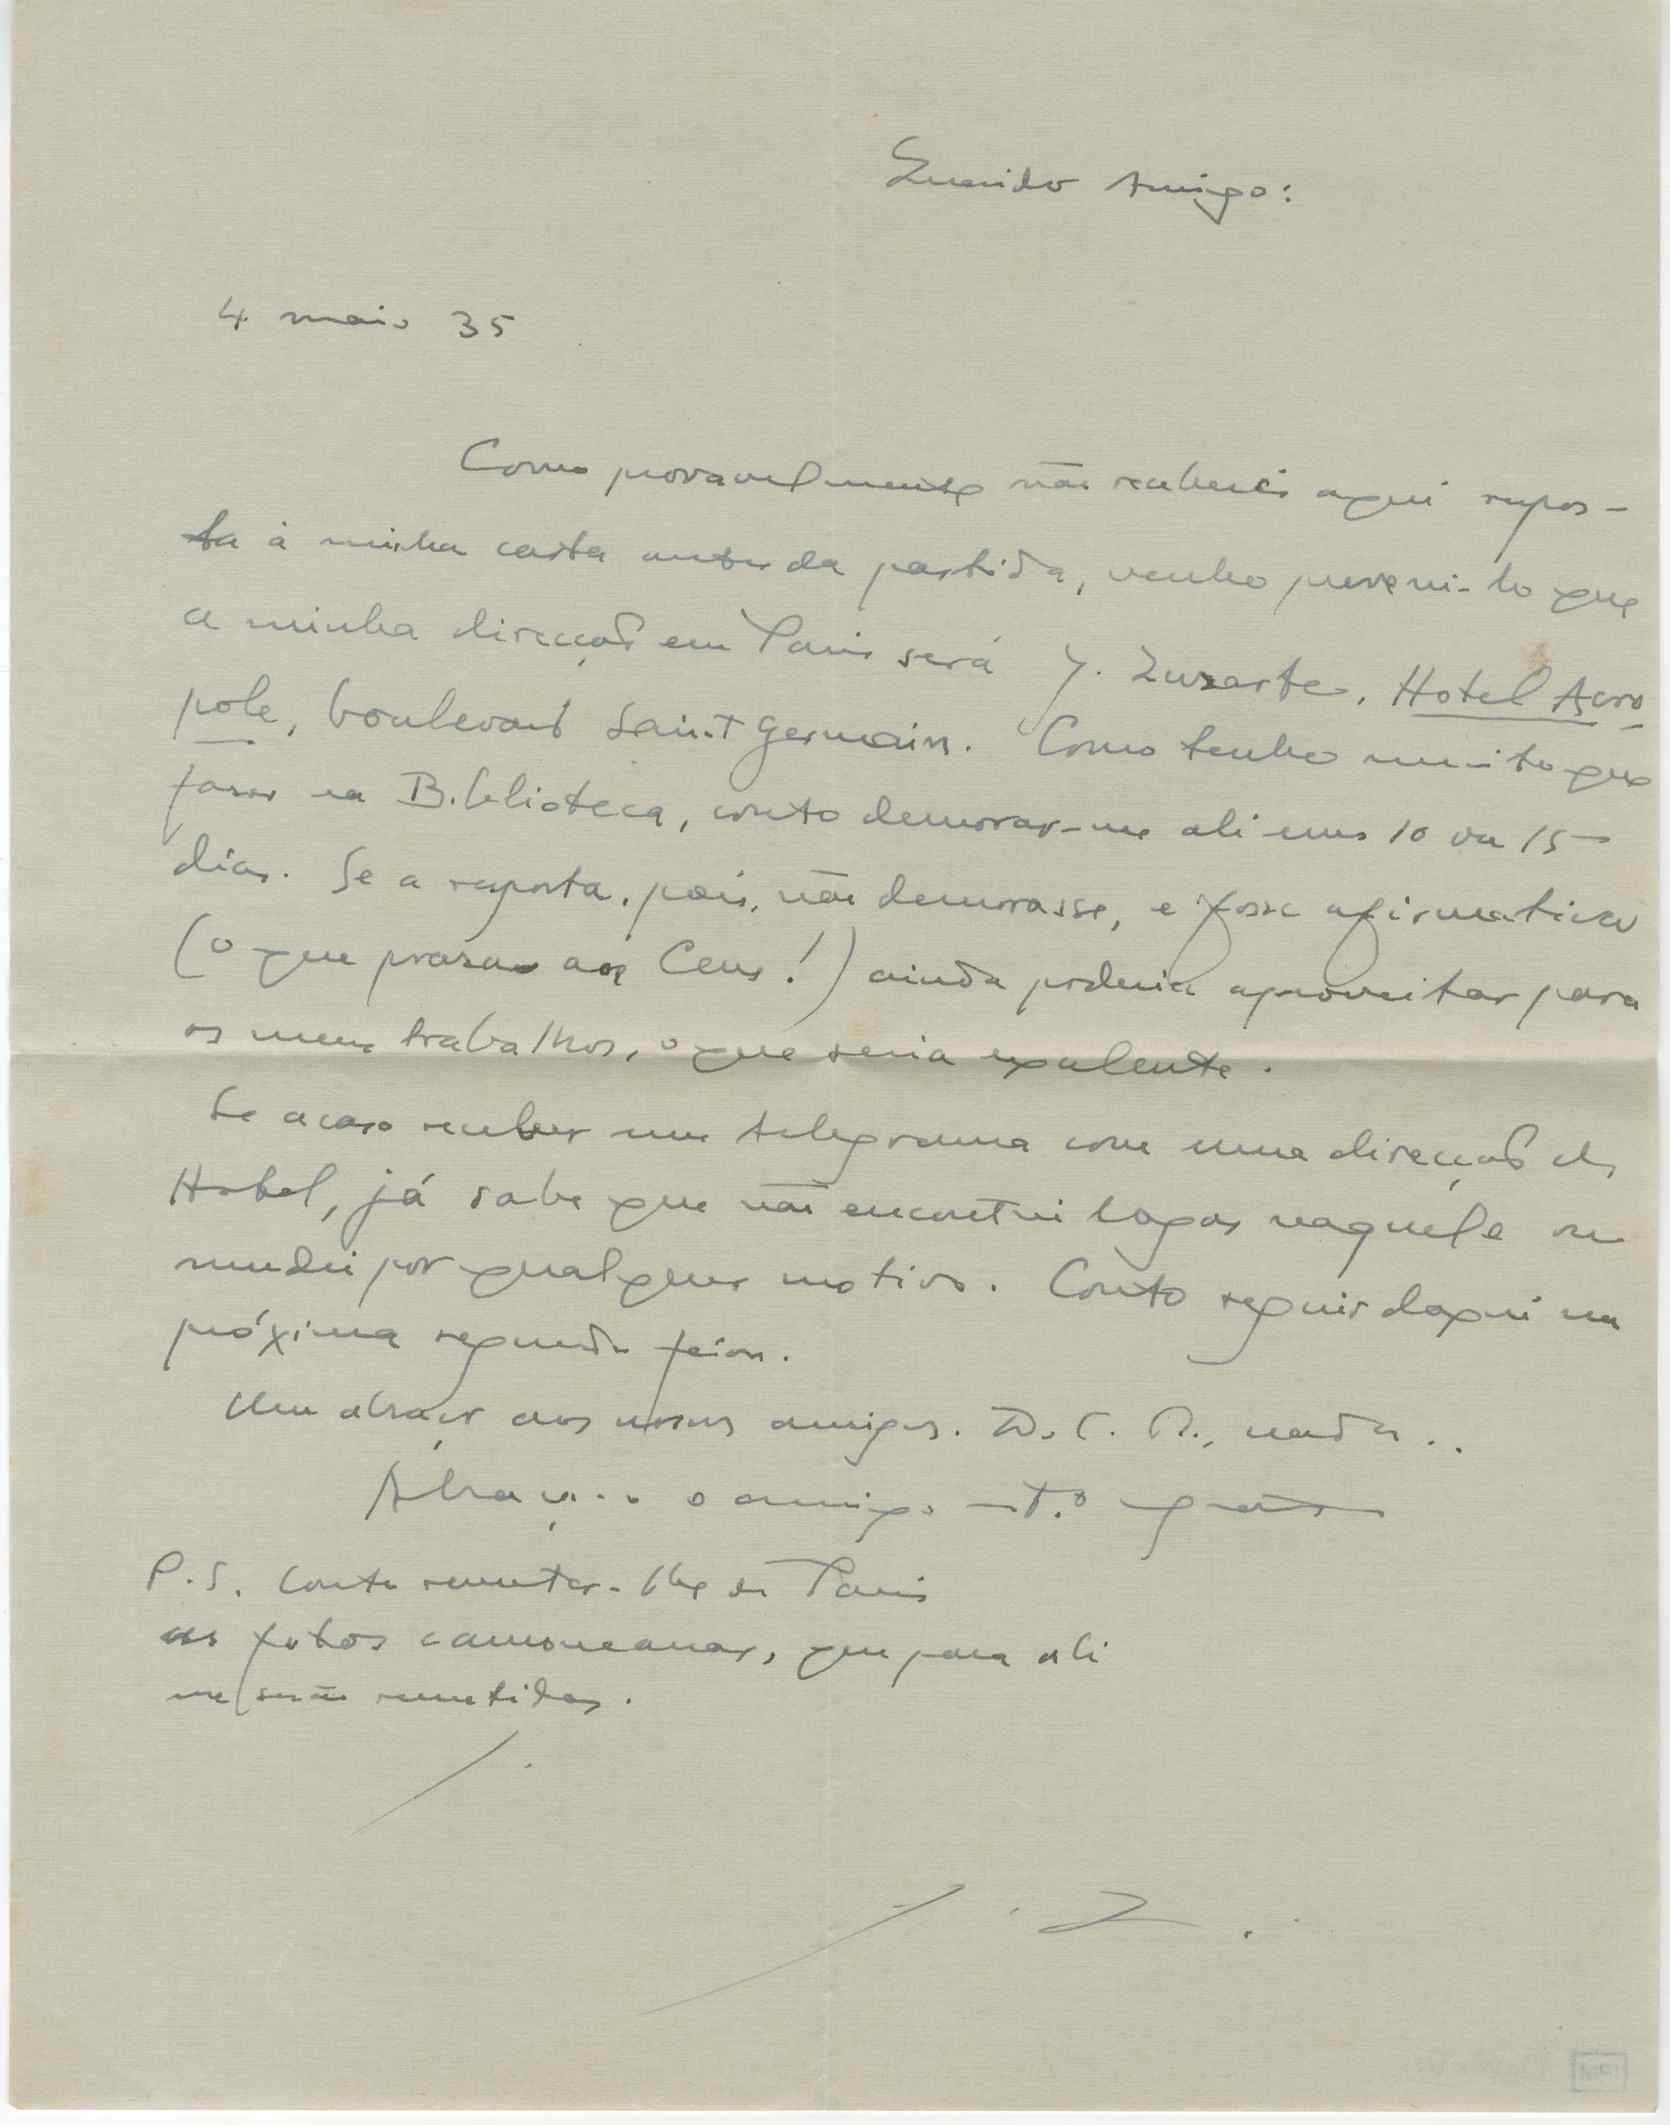 Querido Amigo:
4 maio 35
Como provavelmente não receberei aqui respos-
ta à minha carta antes da partida, venho preveni-lo que
a minha direcção em Paris será J. Zuzarte, Hotel Acro
pole, boulevard Saint Germain. Como tenho muito que
fazer na Biblioteca, conto demorar-me ali uns 10 ou 15
dias. Se a resposta, pois, não demorasse, e fosse afirmativa
(o que praza aos Ceus!) ainda poderia aproveitar para
os meus trabalhos, o que seria excelente.
Se acaso receber um telegrama com uma direcção de
Hotel, já sabe que não encontrei lugar naquele ou
mudei por qualquer motivo. Conto seguir daqui na
próxima segunda feira.
Um abraço aos nossos amigos. D. C. R., nada..
Abraça-o o amigo mt.º grato
P.S. Conto remeter-lhe de Paris
as fotos camoneanas, que para ali
me serão remetidas.
J. Z.